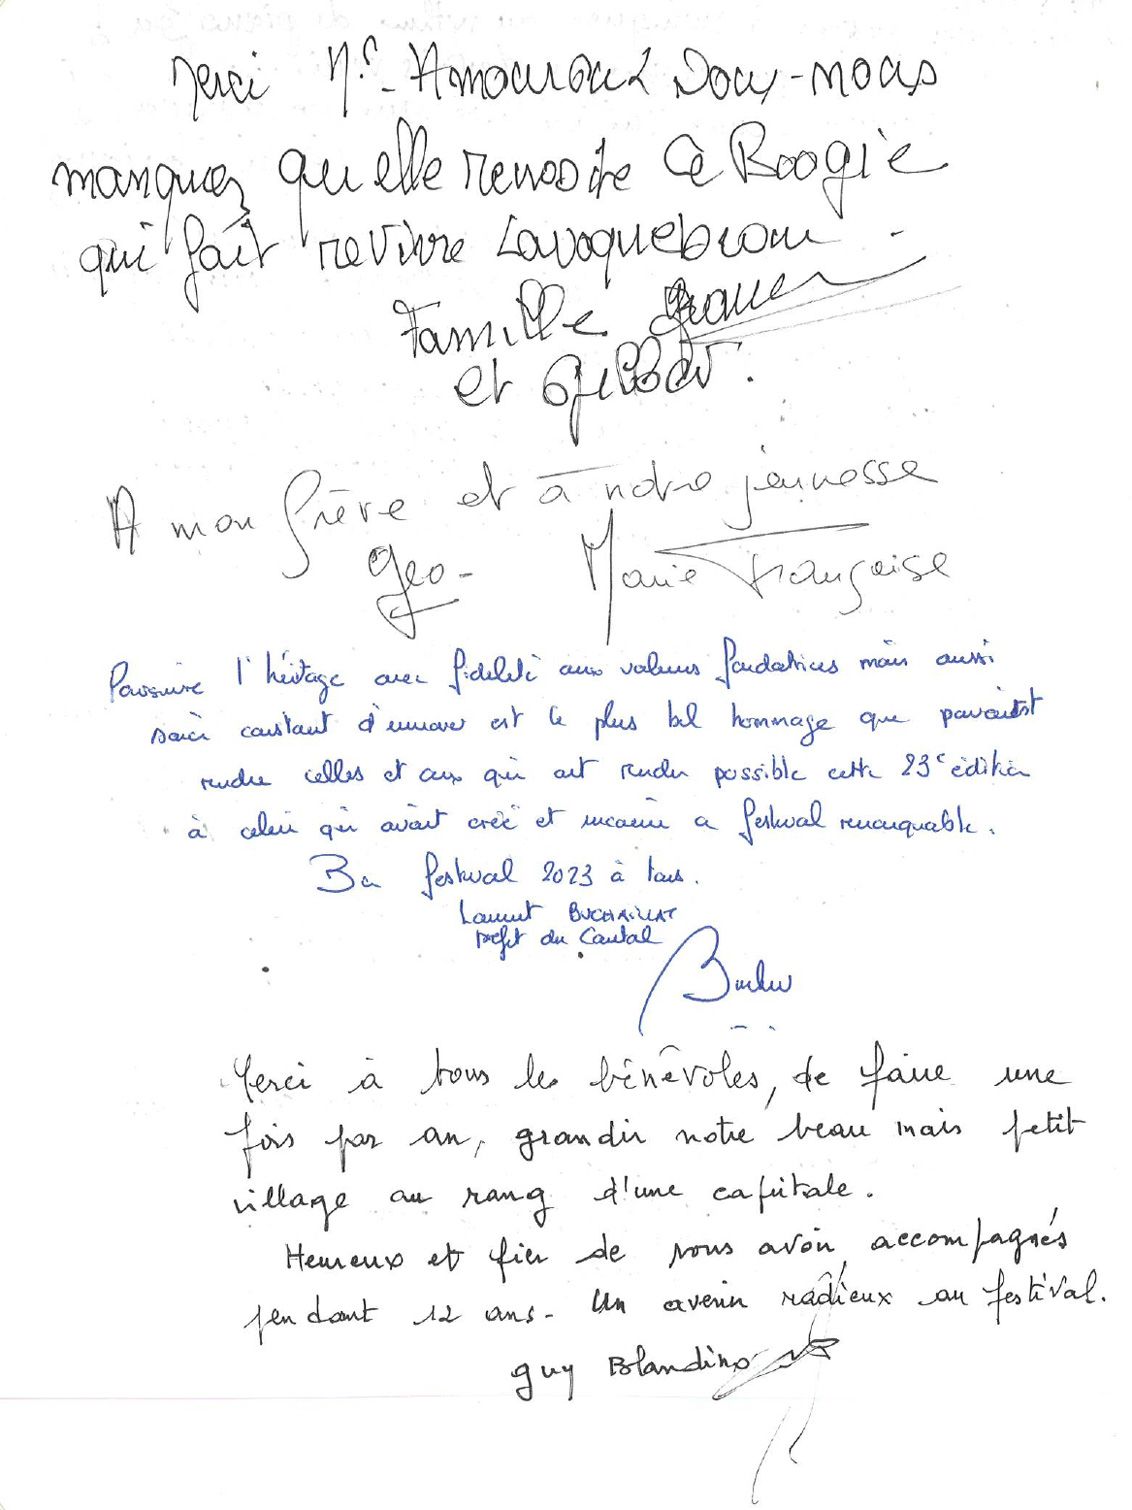 Merci Mr. Amouroux Vous-nous
manquez quelle réussite Ce Boogie
qui fait revivre Laroquebrou.
Famille
et Gilbert.
A mon frère et à notre jeunesse
Géo- Marie Françoise
Poursuivre l'héritage avec fidélité aux valeurs fondatrices mais aussi
souci constant d'innover est le plus bel hommage que pouvaient
rendre celles et ceux qui ont rendu possible cette 23e édition
à celui qui avait créé et incarné ce festival remarquable.
Bon festival 2023 à tous.
Laurent BUCHAILLAT
Préfet du Cantal
Merci à tous les bénévoles, de faire une
fois par an, grandir notre beau mais petit
village au rang d'une capitale.
Heureux et fier de vous avoir accompagnés
pendant 12 ans- Un avenir radieux au festival.
guy Blandino